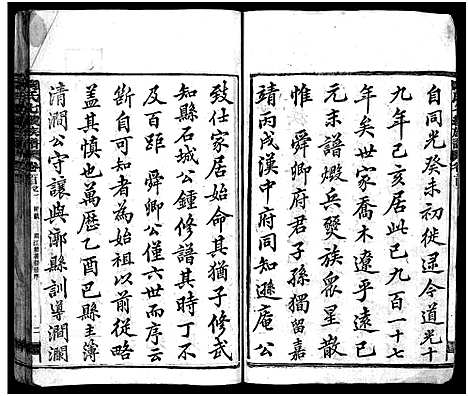 自同光癸未初徙逯今道光十
九年己亥居此已九百一十七
年矣世家喬木遼乎遠已
元末譜燬兵燹族眾星散
惟 舜卿府君子孫獨留嘉
靖丙戌漢中府同知遜庵公
致仕家居始命其猶子修武
知縣石城公鍾修譜其時丁不
及百距 舜卿公僅六世而序云
斷自可知者為始祖而前從略
蓋其慎也萬歷乙酉巴縣主簿
清澗公守讓與漷縣訓導澗瀾